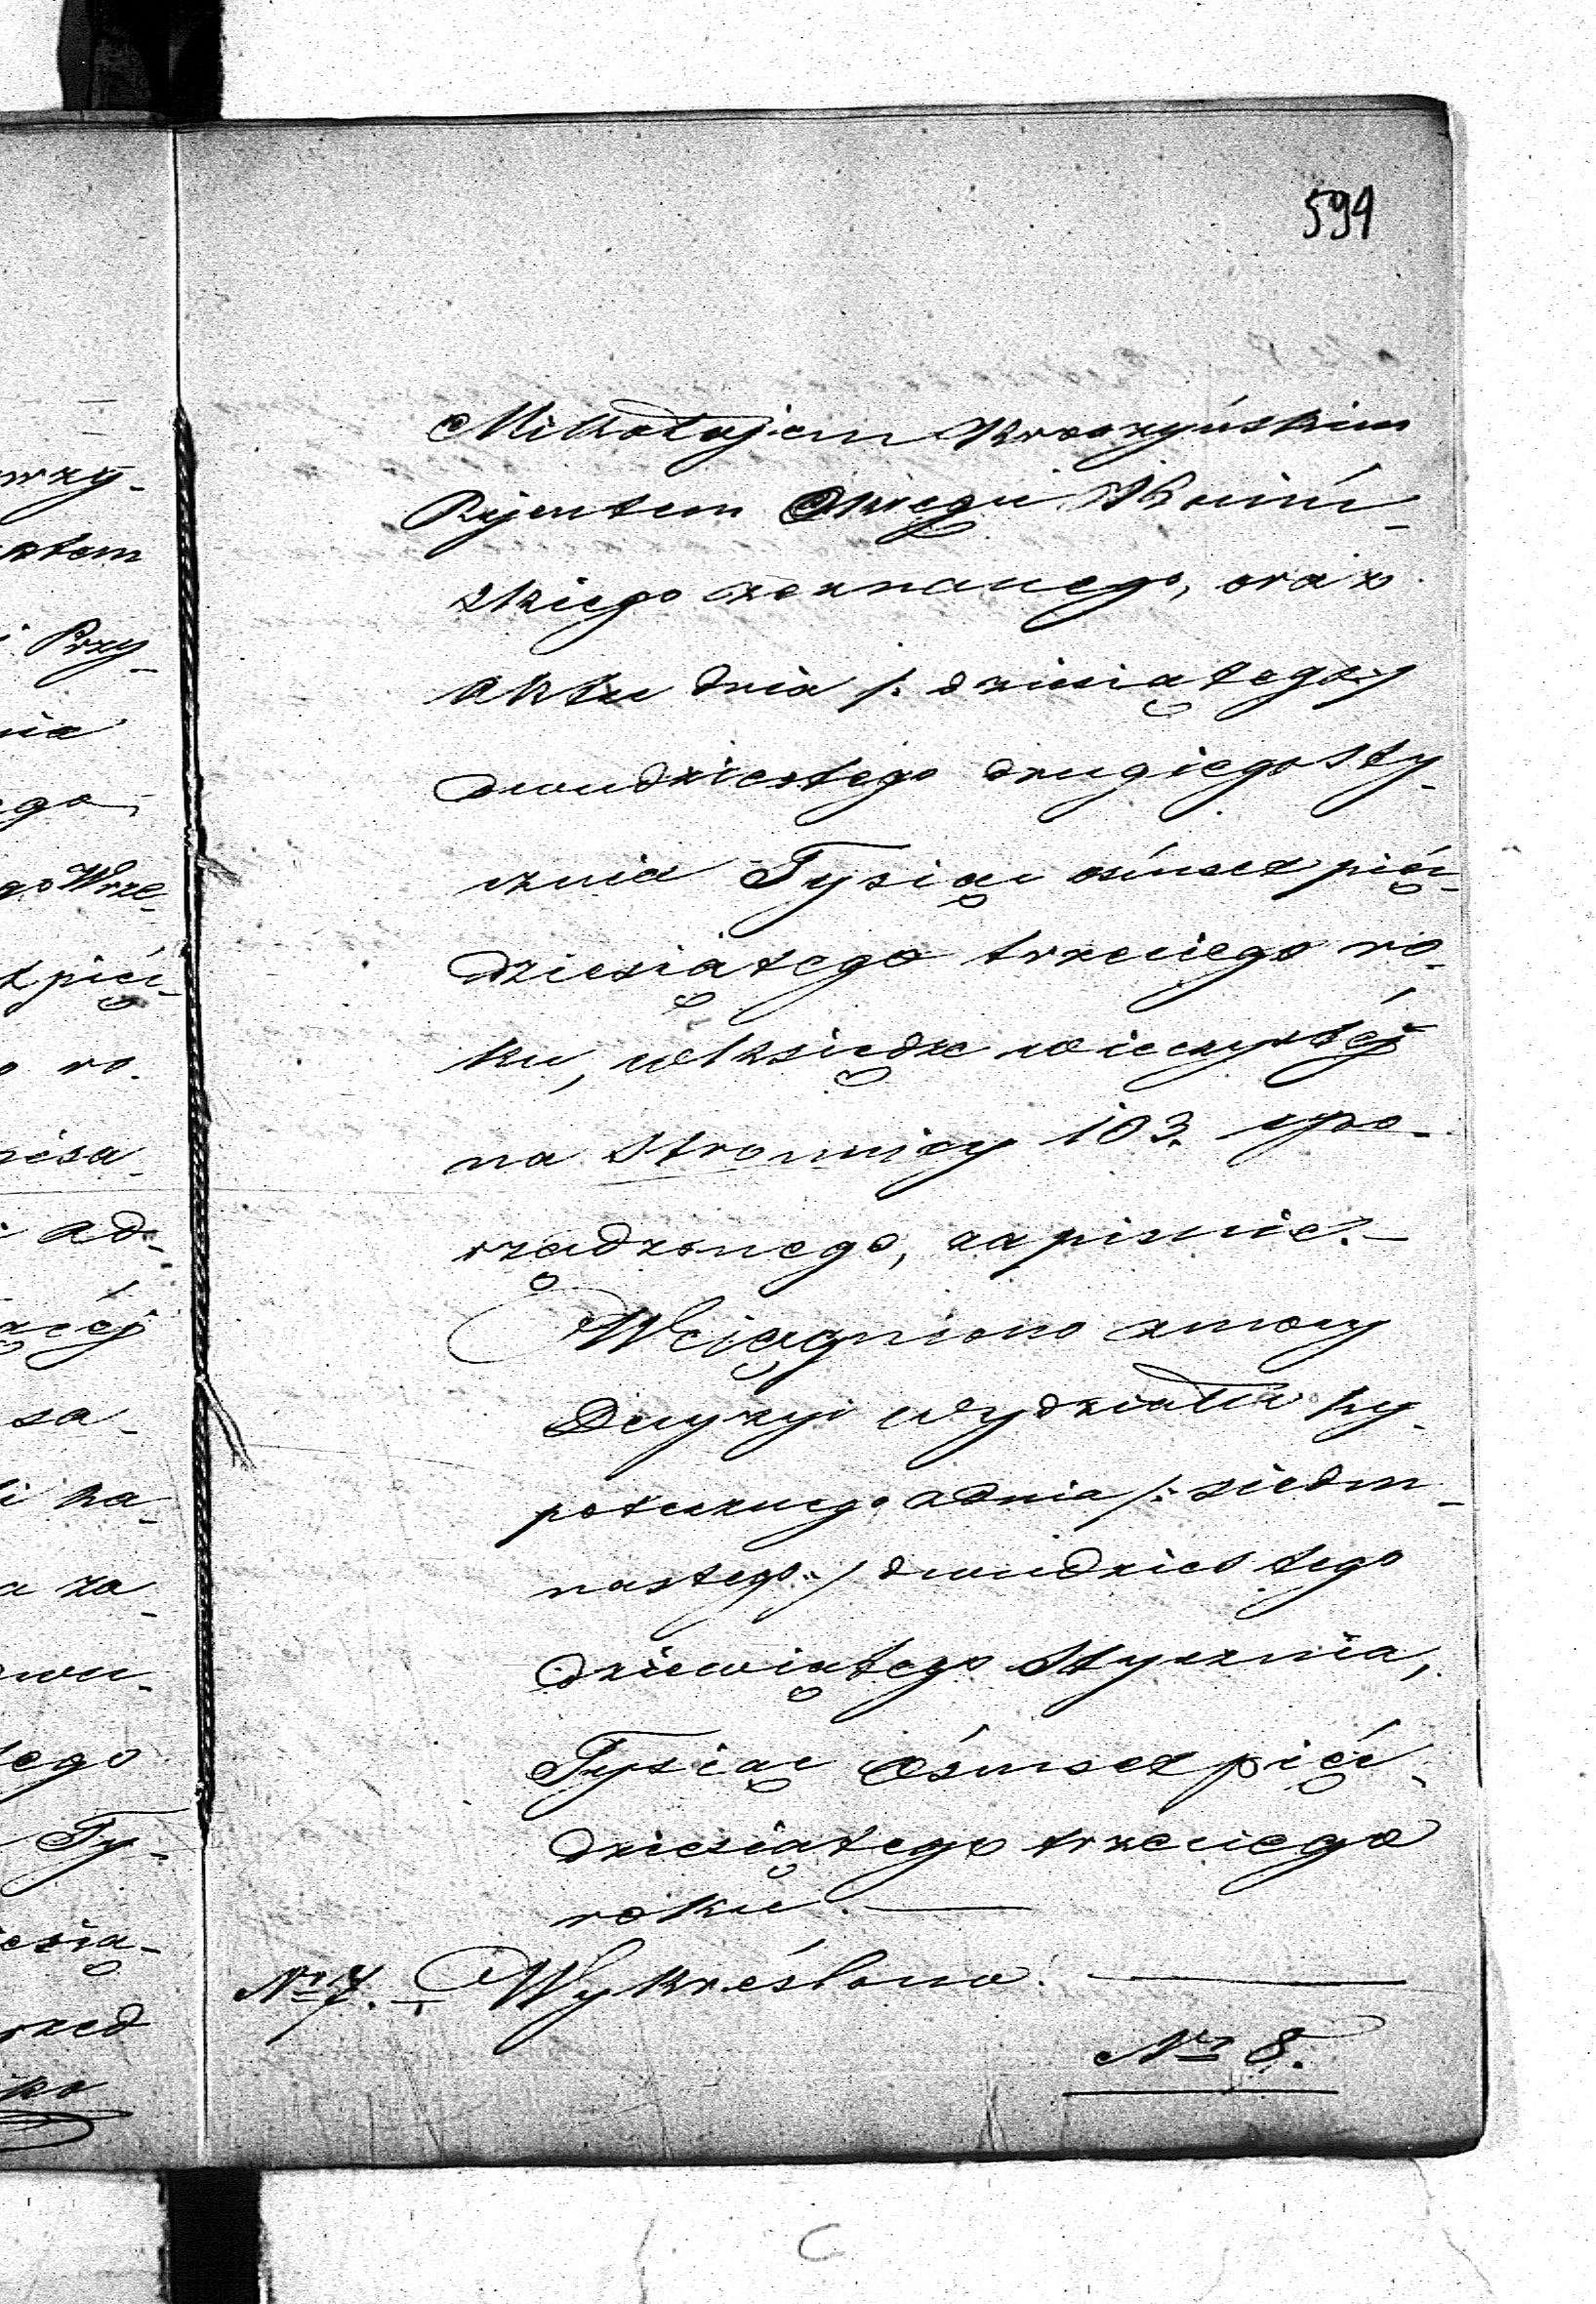 594
Mikołajem
Rejentem Okręgu
skiego zeznanego, oraz
aktu dnia /: dziesiątego :/
dwudziestego drugiego sty-
cznia Tysiąc ośmset pięć-
dziesiątego trzeciego ro-
ku, w Księdze wieczystéj
na Stronnicy 103. spo-
rządzonego, zapisuie.—
Wciągniono z mocy
Decyzyi Wydziału hy-
potecznego z dnia /: siedm-
nastego :/ dwudziestego
dziewiątego Stycznia,
Tysiąc ośmset pięć-
dziesiątego trzeciego
roku.—
No 7. — Wykreślono. —
No 8.
wzy-
ktem
i Przy-
nia
ego
go Wrze-
t pięć-
o ro-
pisa-
i ad-
ącéj
sa-
i ka-
a za-
dwu-
tego
Ty-
iesią-
rzed
ko